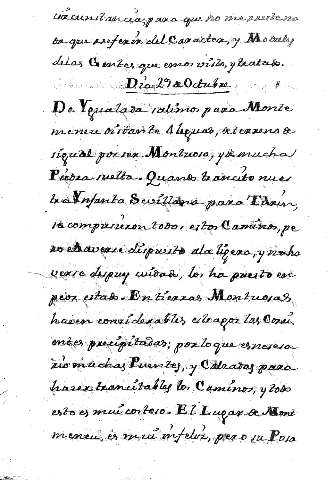 circunstancias, para que no me quede na
da que referir del Caracter, y Modales
de las Gentes que emos visto, y tratado.
Dia 29 de Octubre
De Ygualada salimos para Monte
meneu distante Leguas, de terreno de
sigual por ser Montuoso, y de mucha
Piedra suelta. Quando transito nues
tra Ynfanta Sevillana para Turin,
se compusieron todos estos Caminos, pe
ro el averse dispuesto a la ligera, y no ha
verse despues cuidado, los ha puesto en
peor estado. En tierras Montuosas,
hacen considerables estragos las Corri
entes precipitadas; por lo que es necesa
rio muchas Puentes, y Calzadas para
hacer transitables los Caminos, y todo
esto es mui costoso. El Lugar de Mont
meneu, es mui infeliz, pero su Posa